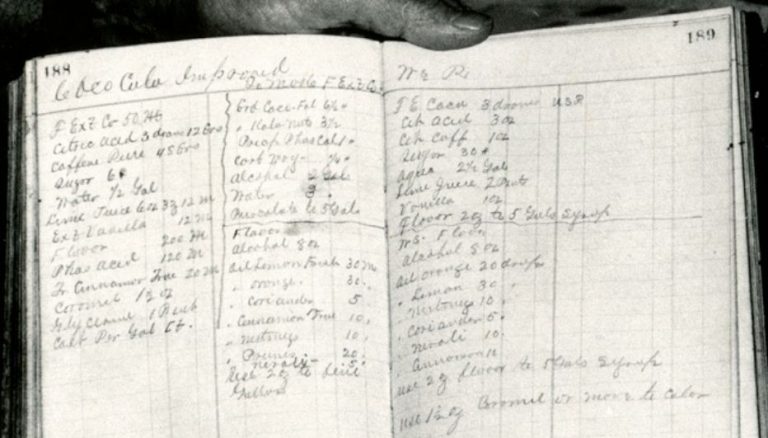 188
Coco Cola Improved
F Ext Co
Citric Acid 3 12
Caffeine Pure 48 Grs
Sugar 6#
Water 1/2 Gal
Lime Juice 6 oz
Ext Vanilla 12 M
Flavor 200 M
Phos Acid 120 M
Cinnamon True 20 M
Caramel 1 oz
Glycerine 1
Cost Per Gal
To Make F Ext Co.
Grd Coca
" Kola Nuts 3 1/2
Alcohol 2 Gals
Water 3
Percolate to 5 Gals
Flavor
Alcohol 8 oz
Oil Lemon Fresh 30 M
" Orange 30 "
" Coriander 5
" Cinnamon True 10 "
" Nutmeg 10 "
" 20 "
" Neroli 5
Use 2 oz to
Gallons
189
F E Coca 3 drams USP
Cit Acid 3 oz
Cit Caff 1 oz
Sugar 30 #
Aqua 2 1/2 Gal
Lime Juice 2
Vanilla 1 oz
Flavor 2 oz to 5 Gals Syrup
Flavor
Alcohol 8 oz
Oil Orange 20 drops
" Lemon 30 "
" Nutmeg 10 "
" Coriander 5 "
" Neroli 10 "
" Cinnamon
Use 2 oz flavor to 5 Gals Syrup
Use Caramel or more to color